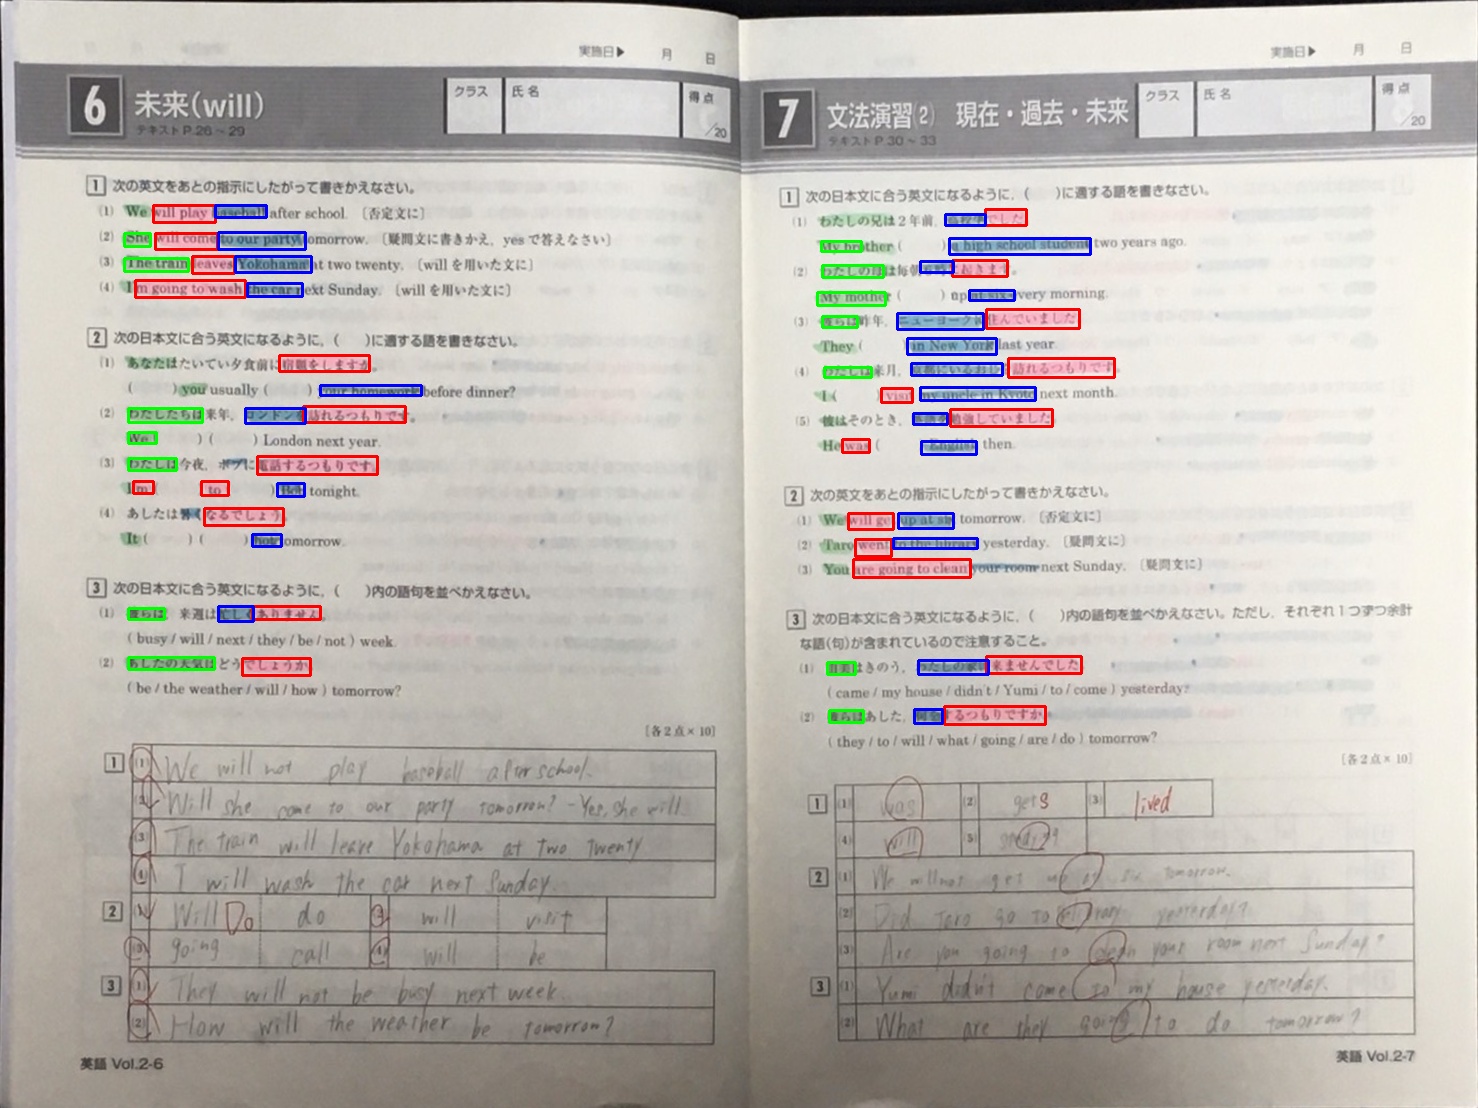 実施日▶ 月 日
6 未来(will)
テキストP.26～29
クラス 氏名 得点 /20
1 次の英文をあとの指示にしたがって書きかえなさい。
(1) We will play baseball after school. 〔否定文に〕
(2) She will come to our party tomorrow. 〔疑問文に書きかえ，yesで答えなさい〕
(3) The train leaves Yokohama at two twenty. 〔willを用いた文に〕
(4) I'm going to wash the car next Sunday. 〔willを用いた文に〕
2 次の日本文に合う英文になるように，( )に適する語を書きなさい。
(1) あなたはたいてい夕食前に宿題をしますか。
( ) you usually ( ) your homework before dinner?
(2) わたしたちは来年，ロンドンを訪れるつもりです。
We ( ) ( ) London next year.
(3) わたしは今夜，ボブに電話するつもりです。
I'm ( ) to ( ) Bob tonight.
(4) あしたは暑くなるでしょう。
It ( ) ( ) hot tomorrow.
3 次の日本文に合う英文になるように，( )内の語句を並べかえなさい。
(1) 彼らは，来週は忙しくありません。
( busy / will / next / they / be / not ) week.
(2) あしたの天気はどうでしょうか。
( be / the weather / will / how ) tomorrow?
[各2点×10]
1 (1) We will not play baseball after school.
(2) Will she come to our party tomorrow? -Yes, she will
(3) The train will leave Yokohama at two twenty
(4) I will wash the car next Sunday.
2 (1) Will Do do (2) will visit
(3) going call (4) will be
3 (1) They will not be busy next week.
(2) How will the weather be tomorrow?
英語 Vol.2-6
実施日▶ 月 日
7 文法演習(2) 現在・過去・未来
テキストP.30～33
クラス 氏名 得点 /20
1 次の日本文に合う英文になるように，( )に適する語を書きなさい。
(1) わたしの兄は2年前，高校生でした。
My brother ( ) a high school student two years ago.
(2) わたしの母は毎朝6時に起きます。
My mother ( ) up at six every morning.
(3) 彼らは昨年，ニューヨークに住んでいました。
They ( ) in New York last year.
(4) わたしは来月，京都にいるおじを訪れるつもりです。
I ( ) visit my uncle in Kyoto next month.
(5) 彼はそのとき，英語を勉強していました。
He was ( ) English then.
2 次の英文をあとの指示にしたがって書きかえなさい。
(1) We will get up at six tomorrow. 〔否定文に〕
(2) Taro went to the library yesterday. 〔疑問文に〕
(3) You are going to clean your room next Sunday. 〔疑問文に〕
3 次の日本文に合う英文になるように，( )内の語句を並べかえなさい。ただし，それぞれ1つずつ余計
な語(句)が含まれているので注意すること。
(1) 由美はきのう，わたしの家に来ませんでした。
( came / my house / didn't / Yumi / to / come ) yesterday.
(2) 彼らはあした，何をするつもりですか。
( they / to / will / what / going / are / do ) tomorrow?
[各2点×10]
1 (1) was (2) gets (3) lived
(4) will (5)
2 (1) We will not get up at six tomorrow.
(2) Did Taro go to library yesterday?
(3) Are you going to clean your room next Sunday?
3 (1) Yumi didn't come to my house yesterday.
(2) What are they going to do tomorrow?
英語 Vol.2-7